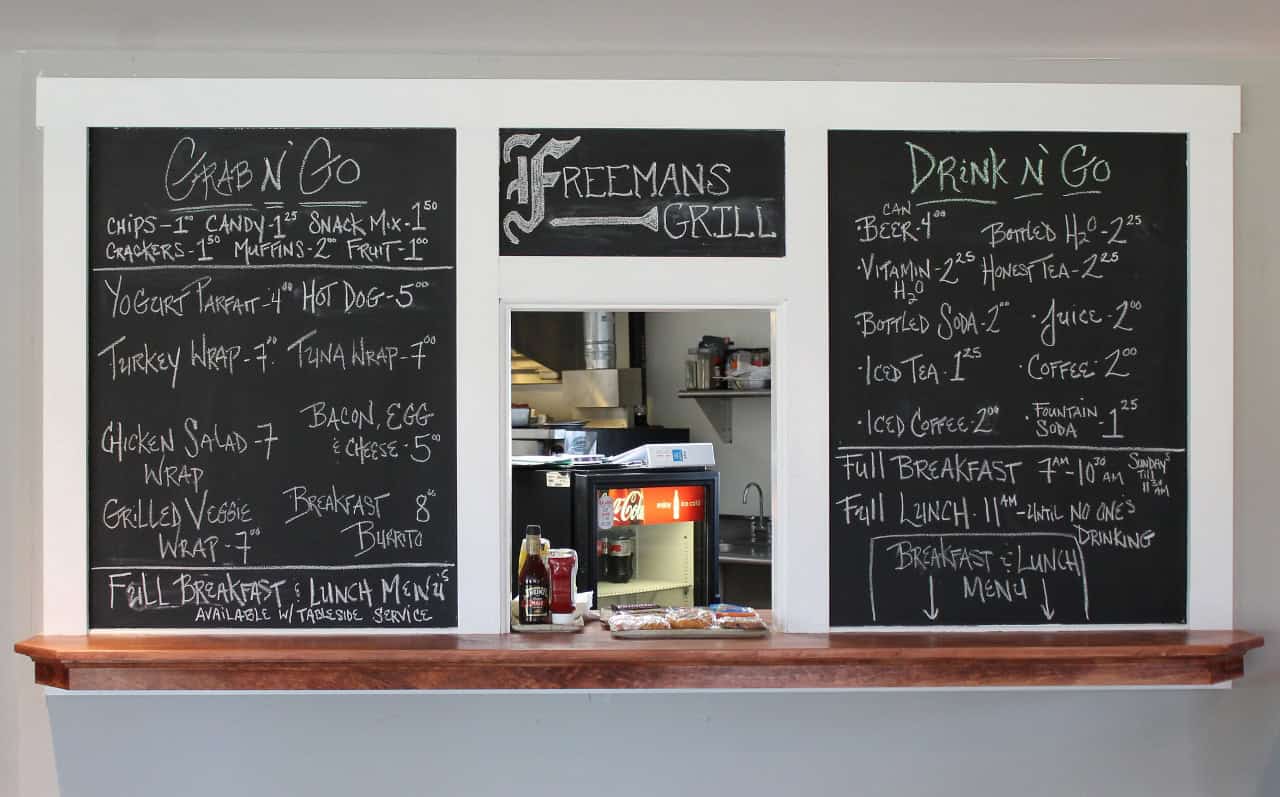 GRAB N' GO
CHIPS-1⁰⁰ CANDY-1²⁵ SNACK MIX-1⁵⁰
CRACKERS-1⁵⁰ MUFFINS-2⁰⁰ FRUIT-1⁰⁰
YOGURT PARFAIT-4⁰⁰ HOT DOG-5⁰⁰
TURKEY WRAP-7⁰⁰ TUNA WRAP-7⁰⁰
CHICKEN SALAD-7
WRAP
BACON, EGG
& CHEESE-5⁰⁰
GRILLED VEGGIE
WRAP-7⁰⁰
BREAKFAST 8⁰⁰
BURRITO
FULL BREAKFAST & LUNCH MENU'S
AVAILABLE W/TABLESIDE SERVICE
FREEMANS
GRILL
Coca-Cola
ice cold
HEINZ
DRINK N' GO
CAN
BEER-4⁰⁰ BOTTLED H₂O-2²⁵
·VITAMIN-2²⁵ HONEST TEA-2²⁵
H₂O
·BOTTLED SODA-2⁰⁰ ·JUICE-2⁰⁰
·ICED TEA·1²⁵ ·COFFEE-2⁰⁰
·ICED COFFEE-2⁰⁰ ·FOUNTAIN
SODA-1²⁵
FULL BREAKFAST 7AM-10³⁰AM SUNDAY'S
TILL
11³⁰AM
FULL LUNCH·11AM-UNTIL NO ONE'S
DRINKING
BREAKFAST & LUNCH
MENU